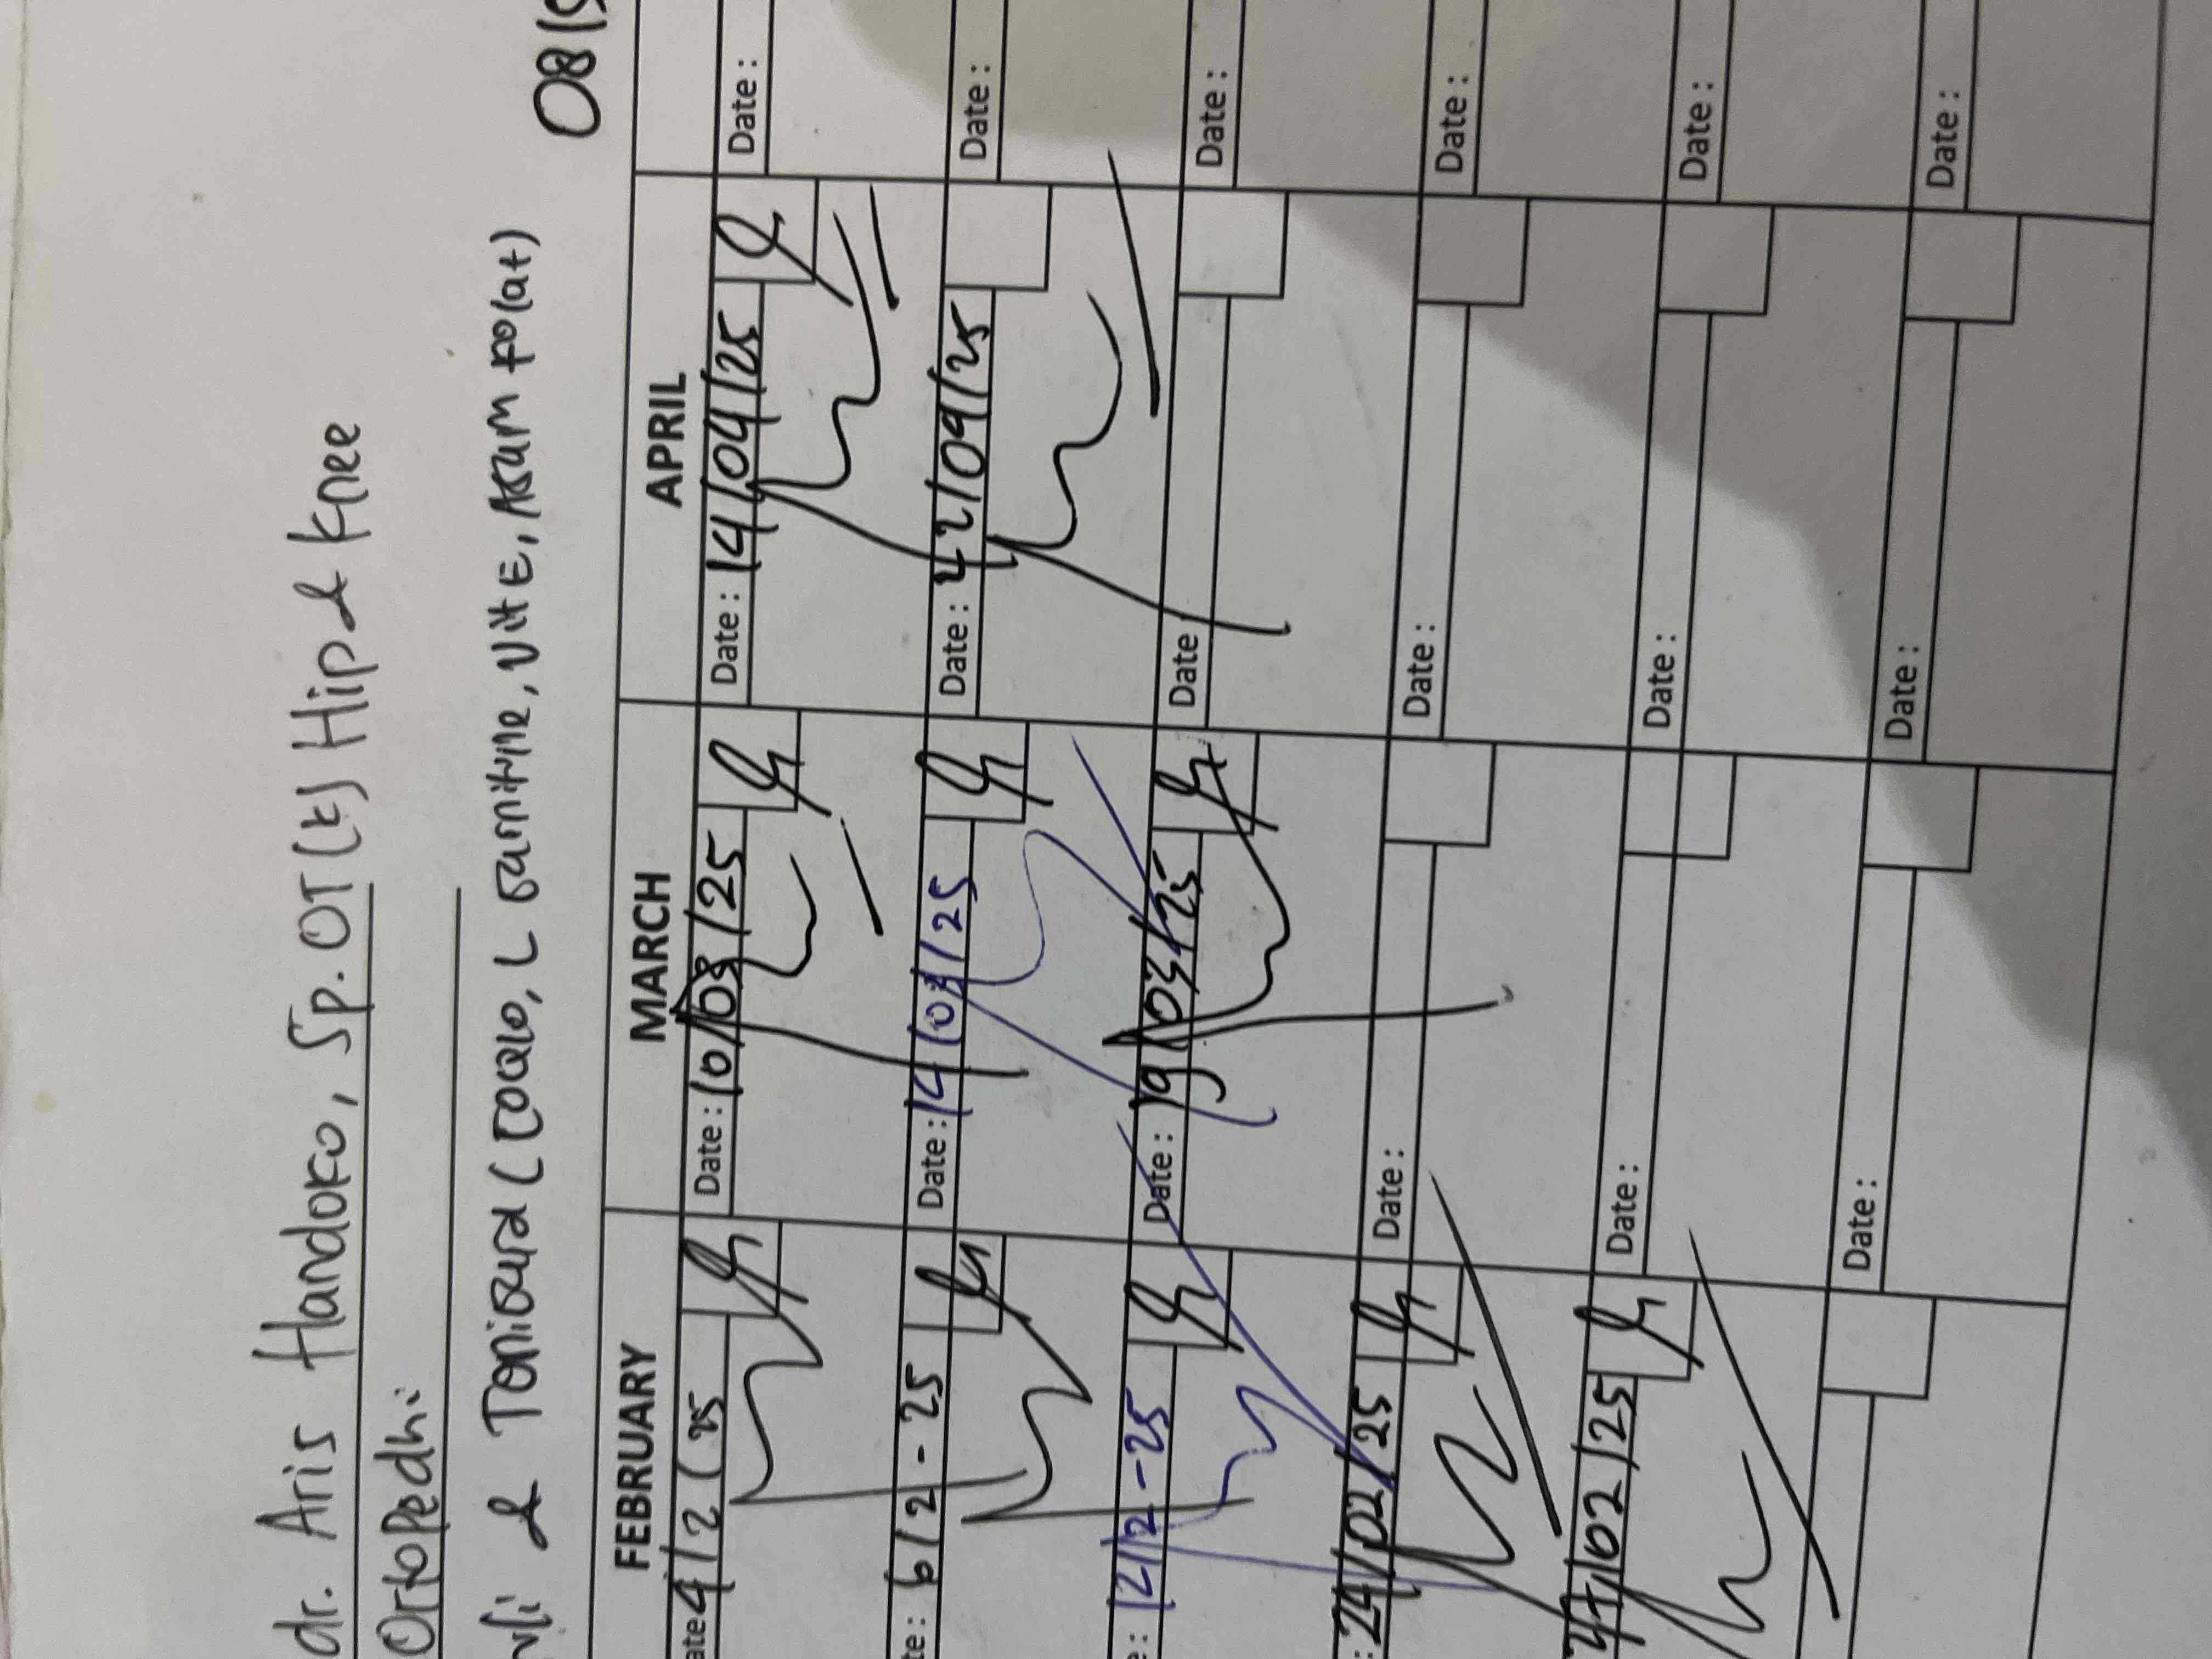 dr. Aris Handoko, Sp. OT (K) Hip & Knee
Ortopedhi
& Tonicura (Coalo, L Carnitine, Vit E, Asam Folat)
FEBRUARY MARCH APRIL
4/2/25 Date: 10/03/25 Date: 14/04/25 Date:
6/2-25 Date: 14/03/25 Date: /25 Date:
12/2-25 Date: 19/03/25 Date Date:
24/02/25 Date: Date: Date:
/02/25 Date: Date: Date:
Date: Date: Date: